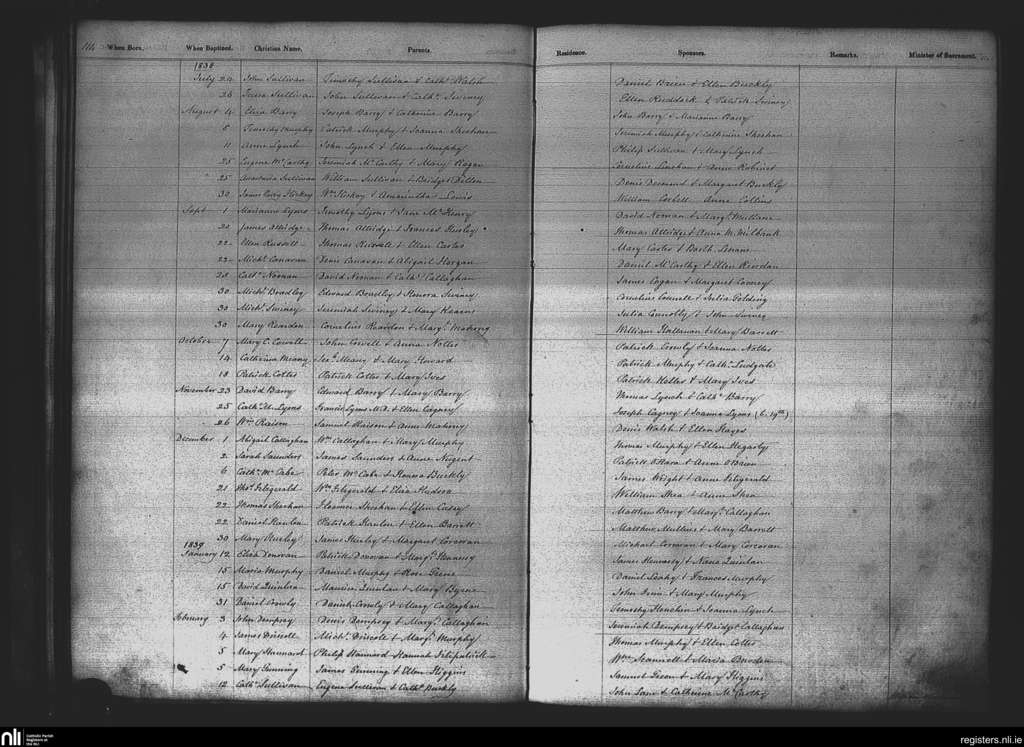 114 When Born. When Baptized. Christian Name. Parents. Residence. Sponsors. Remarks. Minister of Sacrament.
1838
July 24 John Sullivan Timothy Sullivan & Cathe Walsh Daniel Breen & Ellen Buckly
26 Sullivan John Sullivan & Cathe Swiney Ellen Ruddock & Patrick Swiney
August 4 Eliza Barry Joseph Barry & Catherine Barry John Barry & Marianne Barry
5 Timothy Murphy Patrick Murphy & Joanna Sheehan Jeremiah Murphy & Catherine Sheehan
11 Anne Lynch John Lynch & Ellen Murphy Philip Sullivan & Mary Lynch
25 Eugene McCarthy Jeremiah McCarthy & Mary Regan Cornelius Linehan & Anne
25 Anastasia Sullivan William Sullivan & Bridget Dillon Denis Desmond & Margaret Buckly
30 James Hickey Wm Hickey & Amarintha Lewis William Corbett Anne Collins
Sept 1 Marianne Lyons Timothy Lyons & Jane McHenry David Noonan & Margt Mullane
20 James Attridge Thomas Attridge & Frances Hurley Thomas Attridge & Anna M. Milbank
22 Ellen Russell Thomas Russell & Ellen Carter Mary Carter & Barth Lenane
22 Michl Canavan Denis Canavan & Abigail Horgan Daniel McCarthy & Ellen Riordan
28 Cathe Noonan David Noonan & Cathe Callaghan James Cogan & Margaret Cooney
30 Michl Bradley Edward Bradley & Honora Swiney Cornelius Connell & Julia Golding
30 Michl Swiney Jeremiah Swiney & Mary Kearns Julia Connolly & John Swiney
30 Mary Reardon Cornelius Reardon & Margt Mahony William Halloran & Mary Barrett
October 7 Mary C. Cowell John Cowell & Anna Nottes Patrick Crowly & Joanna Nottes
14 Catherine Meany Meany & Mary Howard Patrick Murphy & Cathe Ludgate
18 Patrick Cotter Patrick Cotter & Mary Ives Patrick Nottes & Mary Ives
November 23 David Barry Edward Barry & Mary Barry Thomas Lynch & Cathe Barry
25 Cathe M. Lyons Francis Lyons M.D. & Ellen Cagney Joseph Cagney & Joanna Lyons (b. 19th)
26 Wm Raison Samuel Raison & Anne Mahony Denis Walsh & Ellen Hayes
December 1 Abigail Callaghan Wm Callaghan & Mary Murphy Thomas Murphy & Ellen Hegarty
2 Sarah Saunders James Saunders & Anne Nugent Patrick O'Hara & Anne O'Brien
6 Cathe McCabe Peter McCabe & Honora Buckly James Wright & Anne Fitzgerald
21 Thos Fitzgerald Wm Fitzgerald & Eliza Hudson William Shea & Anne Shea
22 Thomas Sheehan Florence Sheehan & Ellen Casey Matthew Barry & Margt Callaghan
22 Daniel Hanlon Patrick Hanlon & Ellen Barrett Matthew Mullins & Mary Barrett
30 Mary Hurley James Hurley & Margaret Corcoran Michael Corcoran & Mary Corcoran
1839
January 12 Eliza Donovan Patrick Donovan & Margt Hennessy James Hennessy & Nance Quinlan
15 Maria Murphy Daniel Murphy & Rose Daniel Leahy & Frances Murphy
15 David Quinlan Maurice Quinlan & Mary Byrne John Dunn & Mary Murphy
31 Daniel Crowly Daniel Crowly & Mary Callaghan Timothy Henchin & Joanna Lynch
February 3 John Dempsey Denis Dempsey & Margt Callaghan Jeremiah Dempsey & Bridget Callaghan
4 James Driscoll Michl Driscoll & Margt Murphy Thomas Murphy & Ellen Cotter
5 Mary Hannard Philip Hannard Hannah Fitzpatrick Wm Scannell & Maria Bowden
5 Mary Gunning James Gunning & Ellen Higgins Samuel & Mary Higgins
12 Cathe Sullivan Eugene Sullivan & Cathe Buckly John Lane & Catherine McCarthy
nli Catholic Parish Registers at the NLI
registers.nli.ie